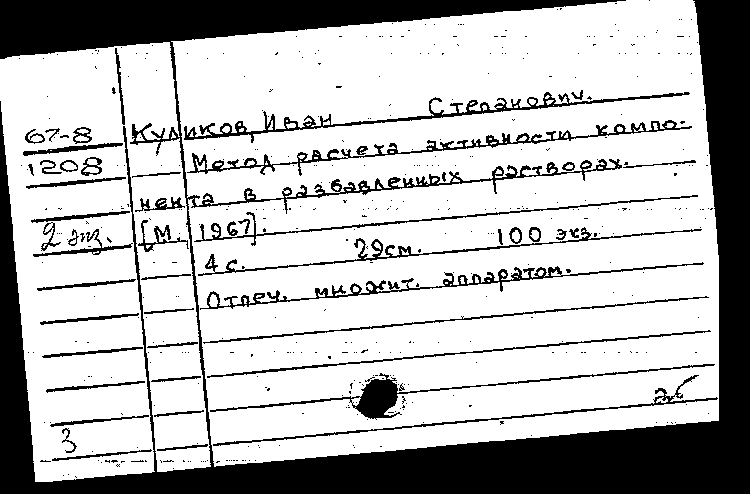 67-8 Куликов, Иван Степанович.
1208 Метод расчета активности компо-
нента в разбавленных растворах.
2 экз. [М. 1967].
4 с. 29см. 100 экз.
Отпеч. множит. аппаратом.
3